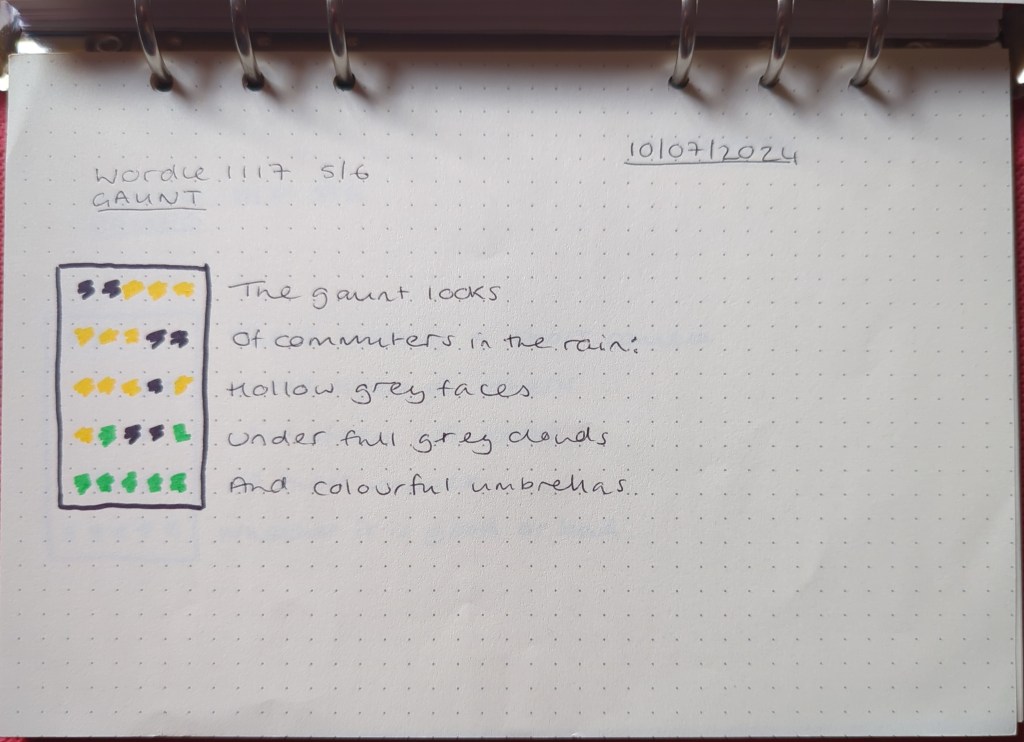 10/07/2024
Wordle 1117 5/6
GAUNT
The gaunt looks
Of commuters in the rain:
Hollow grey faces
Under full grey clouds
And colourful umbrellas.